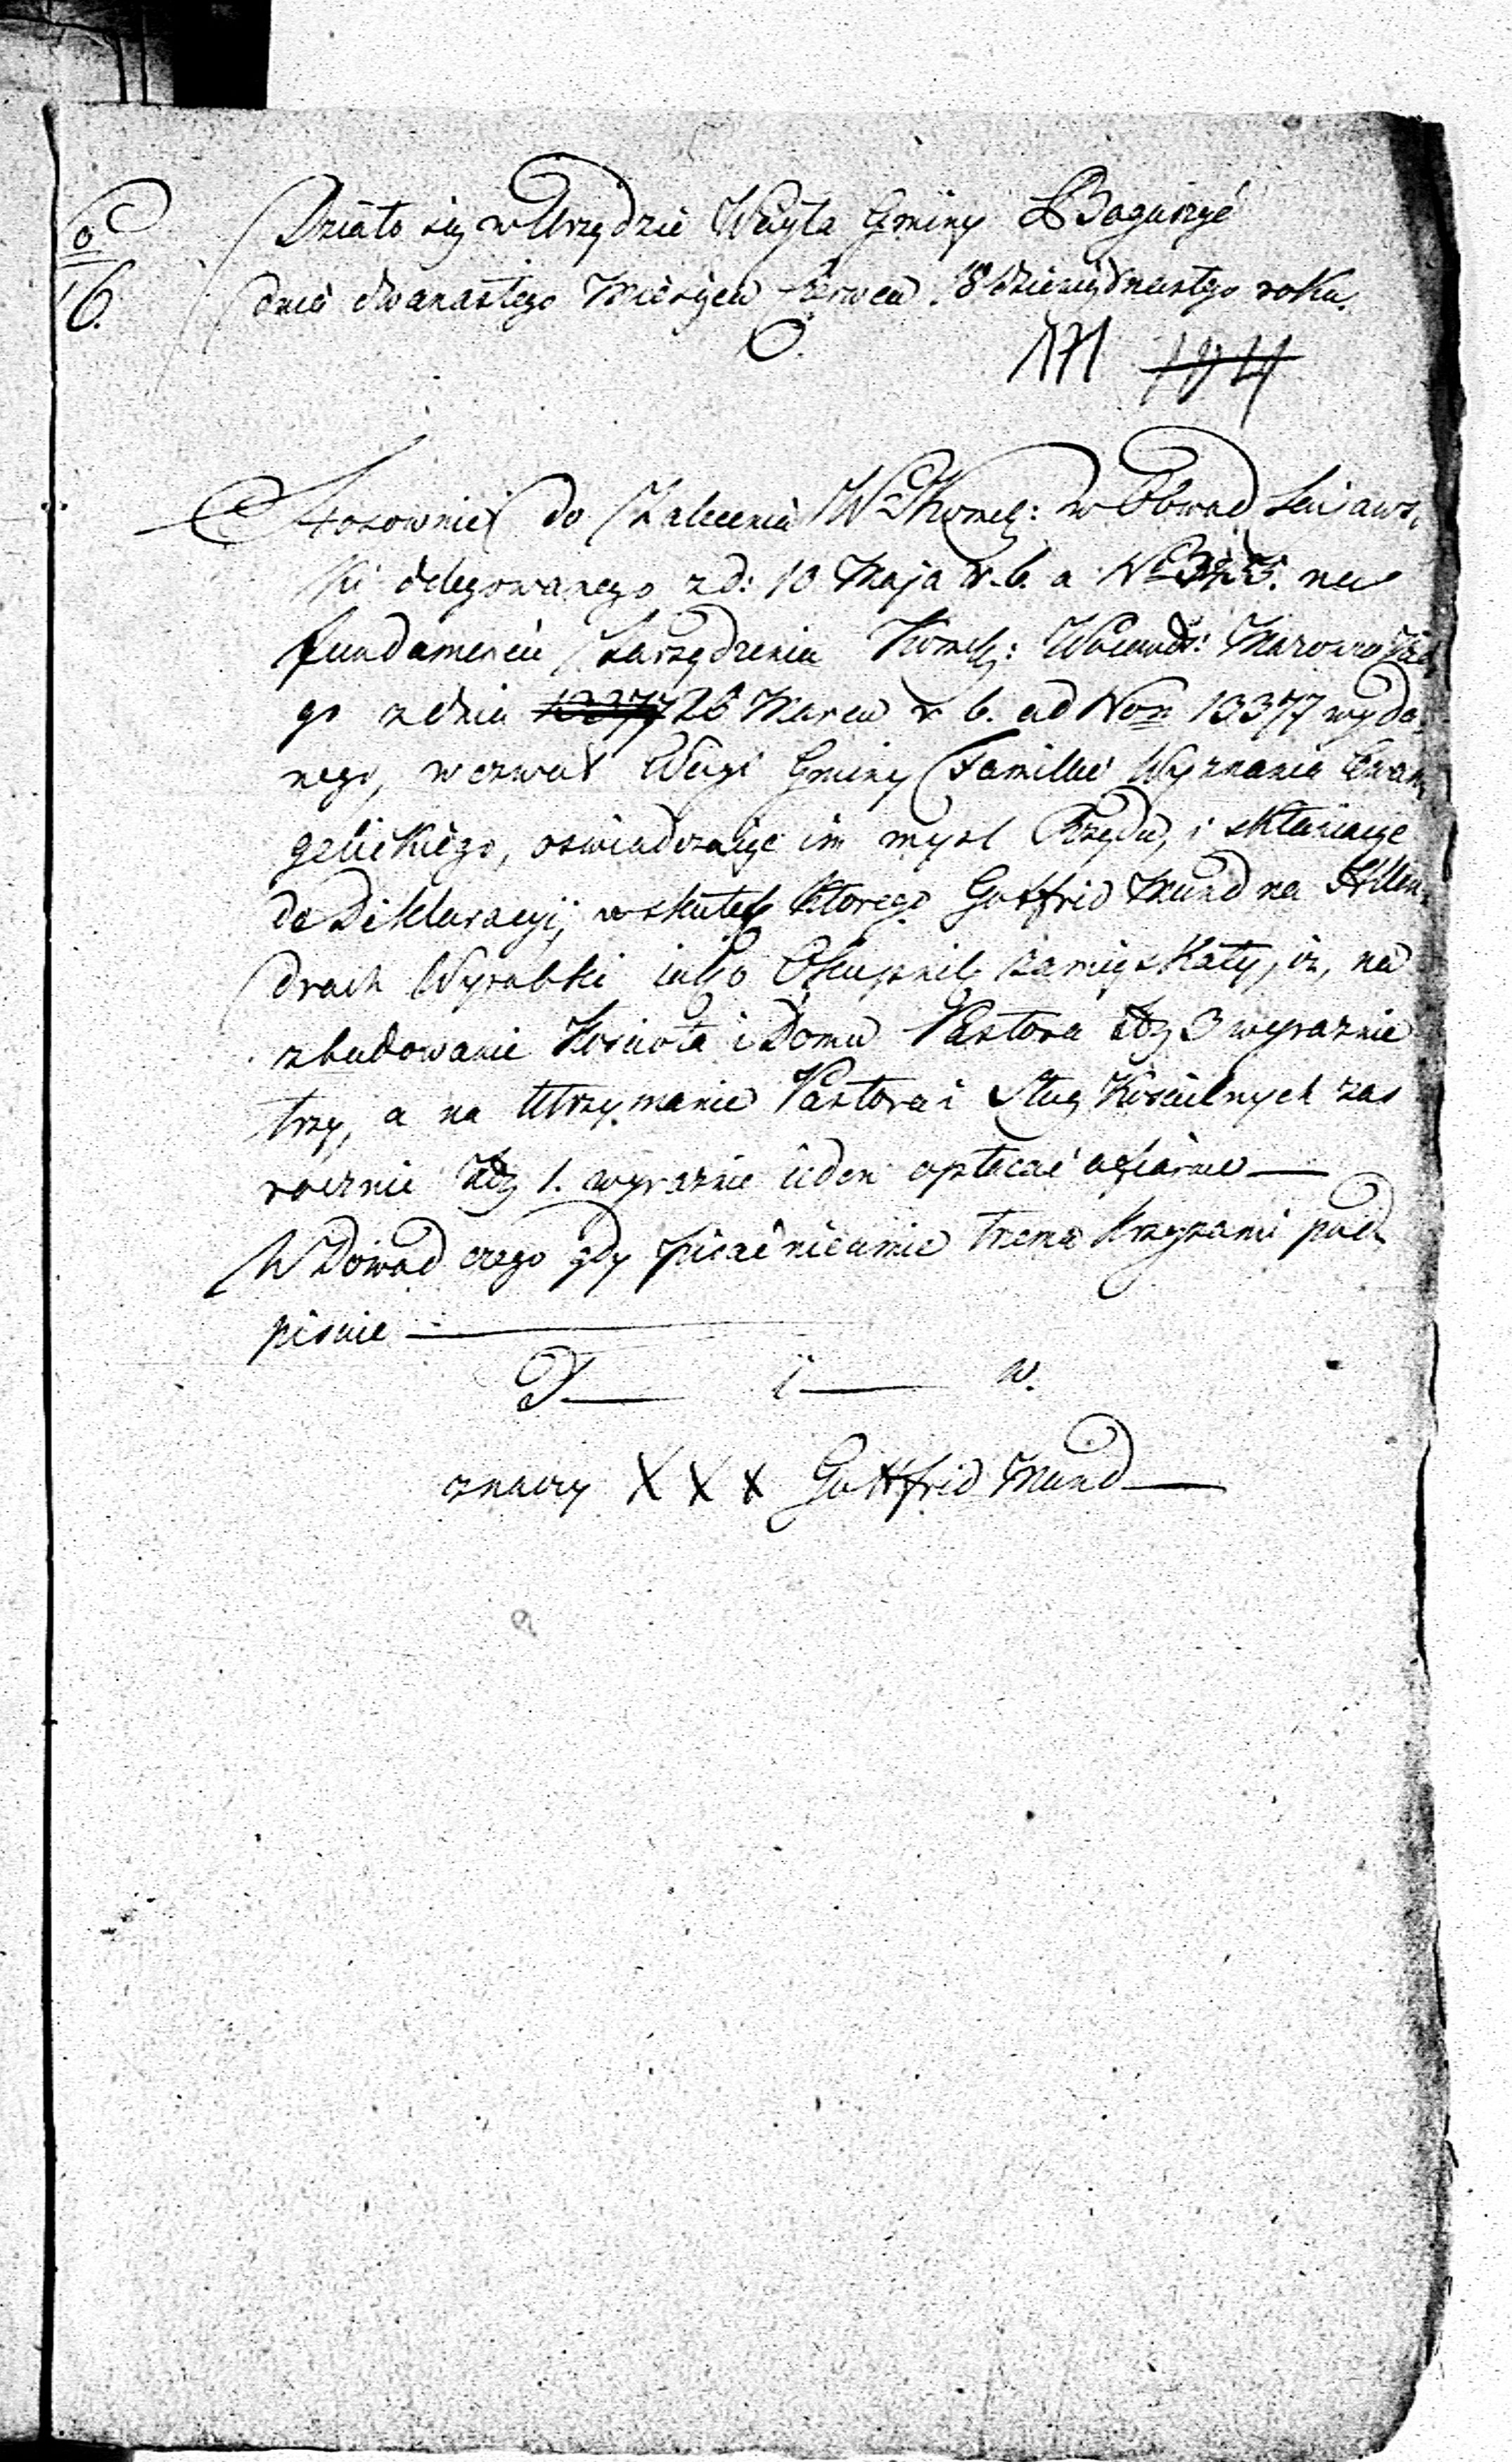 Działo się w Urzędzie Woyta Gminy Boguszyć
dnia dwanastego Miesiąca Czerwca 18 dziewiętnastego roku.
6.
171 194
Stosownie do Zalecenia W Kommss: w Obwod
ski delegowanego z d: 10 Maja r. b. a No na
fundamencie Zarządzenia Kommss: Mazowieckie
go z dnia 13377 26 Marca r b. ad Nom 13377 wyda
nego, wezwał Woyt Gminy Familie Wyznania Ewan
gelickiego, oswiadczaiąc im mysl Rządu, i skłaniaiąc
do Deklaracyi, w skutek ktorego Gottfrid Mund na Hollen
drach Wyrabki iako Okupnik zamięszkały, iz, na
zbudowanie Kościoła i Domu Pastora 3 wyraznie
trzy, a na Utrzymanie Pastora i Sług Kościelnych zas
rocznie 1. wyraznie ieden opłacać ofiaruie
W Dowod czego gdy pisać nieumie trzema krzyzami pod
pisuie
znaczy X X X Gottfrid Mund